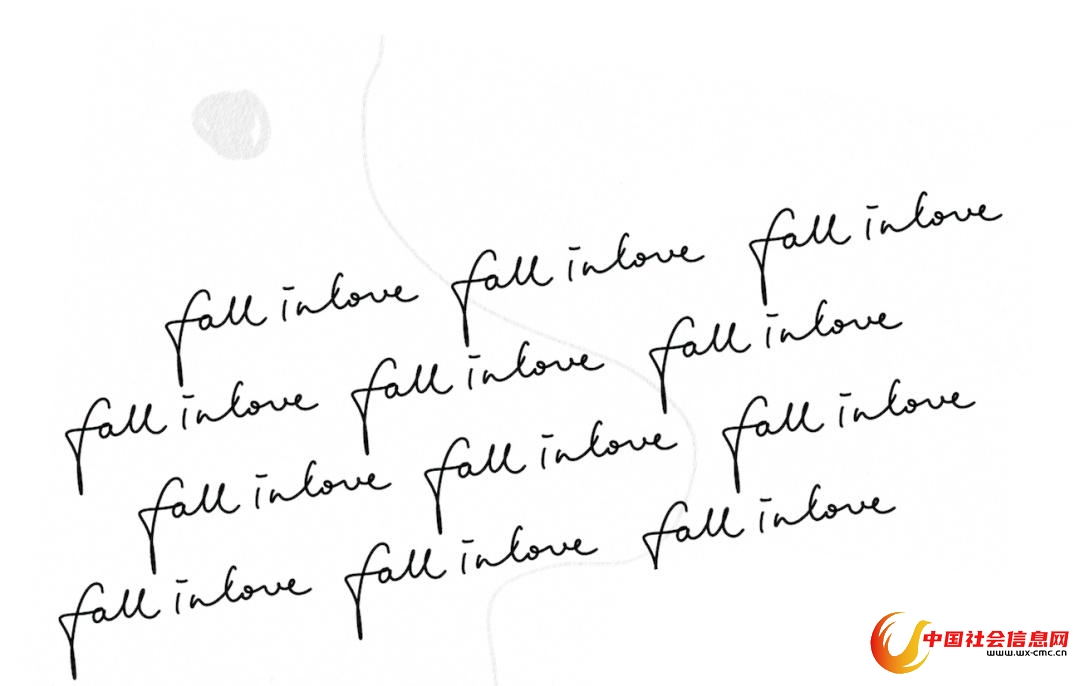 fall in love fall in love fall in love
fall in love fall in love fall in love
fall in love fall in love fall in love
fall in love fall in love fall in love
中国社会信息网
www.wx-cmc.cn